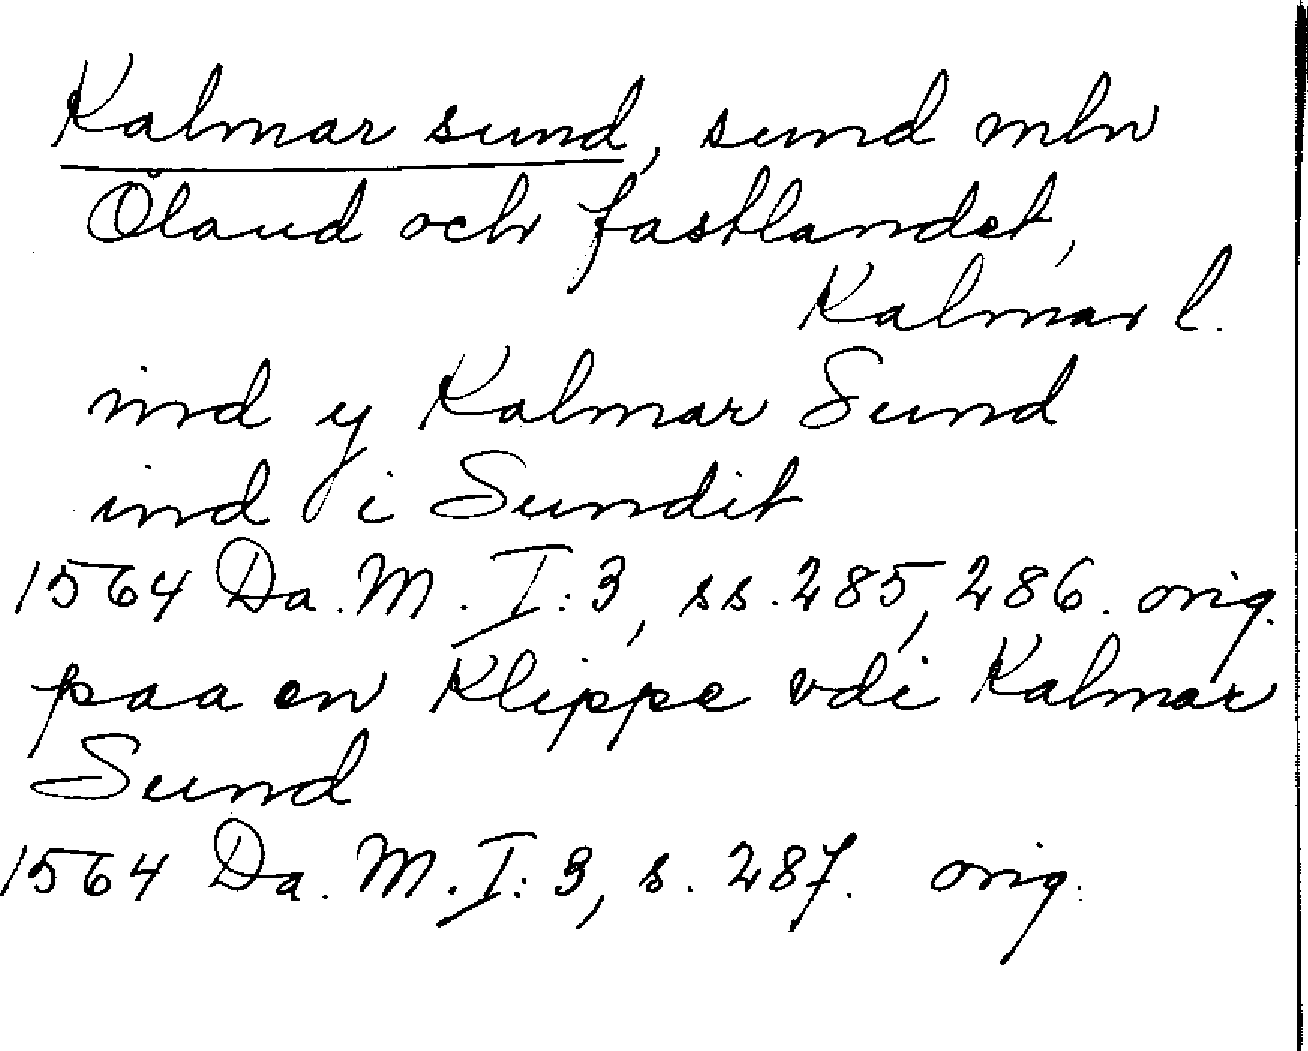 Kalmar sund, sund mln
Öland och fastlandet,
Kalmar l.
ind y Kalmar Sund
ind i Sundit
1564 Da. M. I: 3, ss. 285, 286. orig.
paa en Klippe vdi Kalmar
Sund
1564 Da. M. I: 3, s. 287. orig.